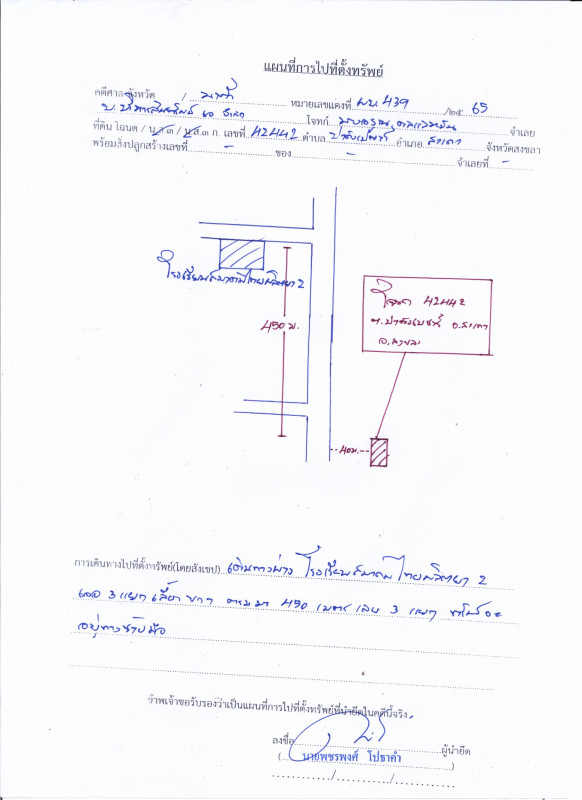 แผนที่การไปที่ตั้งทรัพย์
คดีศาลจังหวัด / นาทวี หมายเลขแดงที่ ผบ.439 /๒๕ 65
โจทก์ จำเลย
ที่ดิน โฉนด / น.ส.๓ / น.ส.๓ ก. เลขที่ 42442 ตำบล ปาดังเบซาร์ อำเภอ สะเดา จังหวัดสงขลา
พร้อมสิ่งปลูกสร้างเลขที่ - ของ - จำเลยที่ -
โรงเรียนสมาคมไทยพิทยา 2
450 ม.
โฉนด 42442
ต.ปาดังเบซาร์ อ.สะเดา
จ.สงขลา
40ม.
การเดินทางไปที่ตั้งทรัพย์(โดยสังเขป) เดินทางผ่าน โรงเรียนสมาคมไทยพิทยา 2
เจอ 3 แยก เลี้ยวขวา ตรงมา 450 เมตร เลย 3 แยก
อยู่ทางซ้ายมือ
ข้าพเจ้าขอรับรองว่าเป็นแผนที่การไปที่ตั้งทรัพย์ที่นำยึดในคดีนี้จริง
ลงชื่อ ผู้นำยึด
( นายพชรพงศ์ โปธาคำ )
/ /